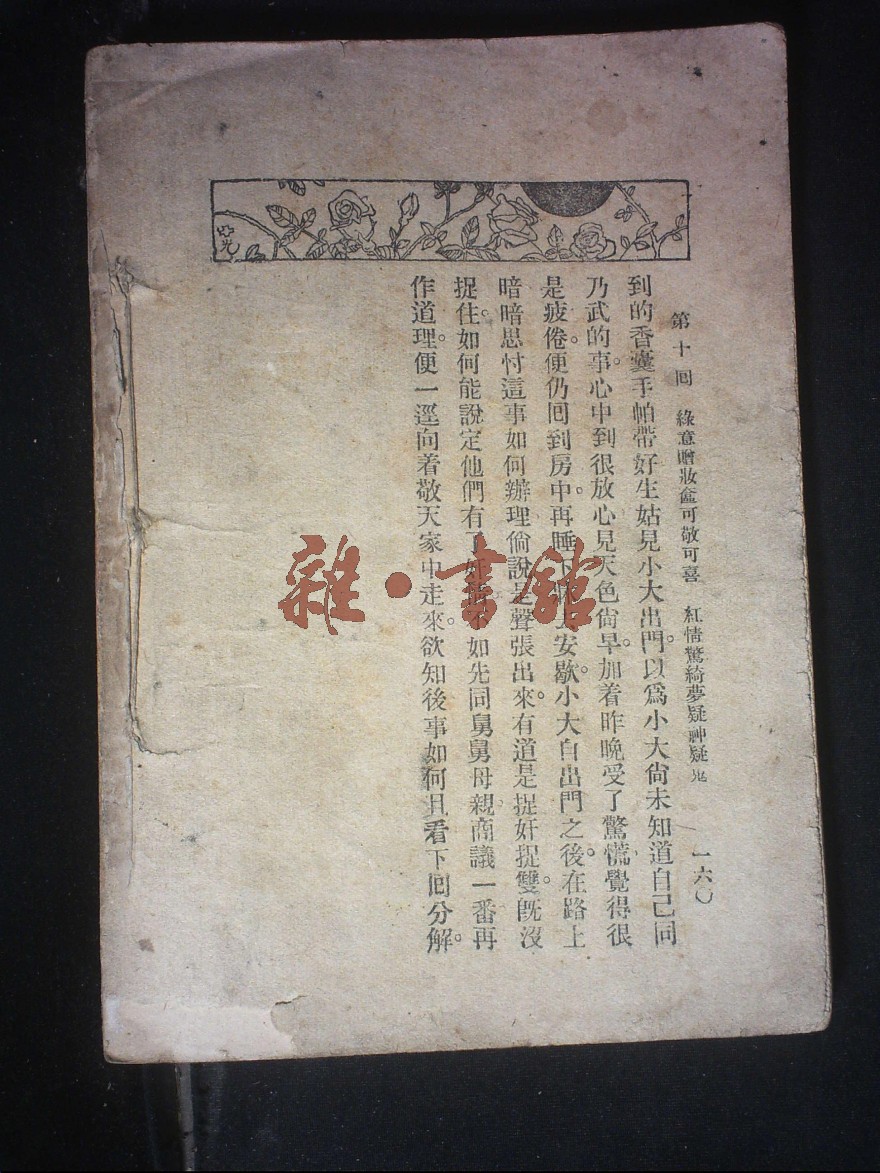 第十回 綠意贈妝奩可敬可喜 紅情驚綺夢疑神疑鬼 一六〇
到的香囊手帕帶好生姑見小大出門。以爲小大尙未知道自己同
乃武的事。心中到很放心見天色尙早。加着昨晚受了驚慌覺得很
是疲倦。便仍回到房中。再睡下床上安歇。小大自出門之後。在路上
暗暗思忖這事如何辦理倘說是聲張出來。有道是捉奸捉雙。旣沒
捉住。如何能說定他們有了奸情不如先同舅舅母親商議一番再
作道理。便一逕向着敬天家中走來。欲知後事如何且看下回分解。
雜·書館